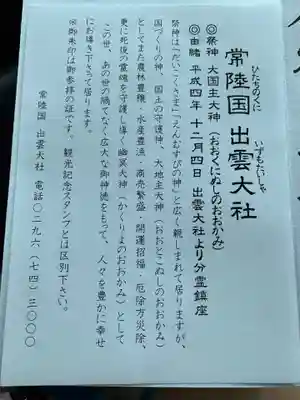 常陸国 出雲大社
ひたちのくに いずもたいしゃ
◎祭神 大国主大神（おおくにぬしのおおかみ）
◎由緒 平成四年 十二月四日 出雲大社より分霊鎮座
祭神は「だいこくさま」「えんむすびの神」と広く親しまれて居りますが、
国づくりの神、国土の守護神、大地主大神（おおとこぬしのおおかみ）
としてまた農林豊穣・水産豊漁、商売繁盛・開運招福・厄除方災除、
更に死後の霊魂を守護し導く幽冥大神（かくりょのおおかみ）として
この世、あの世の隔てなく広大な御神徳をもって、人々を豊かに幸せ
にお導き下さって居ります。
※御朱印は御参拝の証です。観光記念スタンプとは区別下さい。
常陸国 出雲大社 電話〇二九六（七四）三〇〇〇